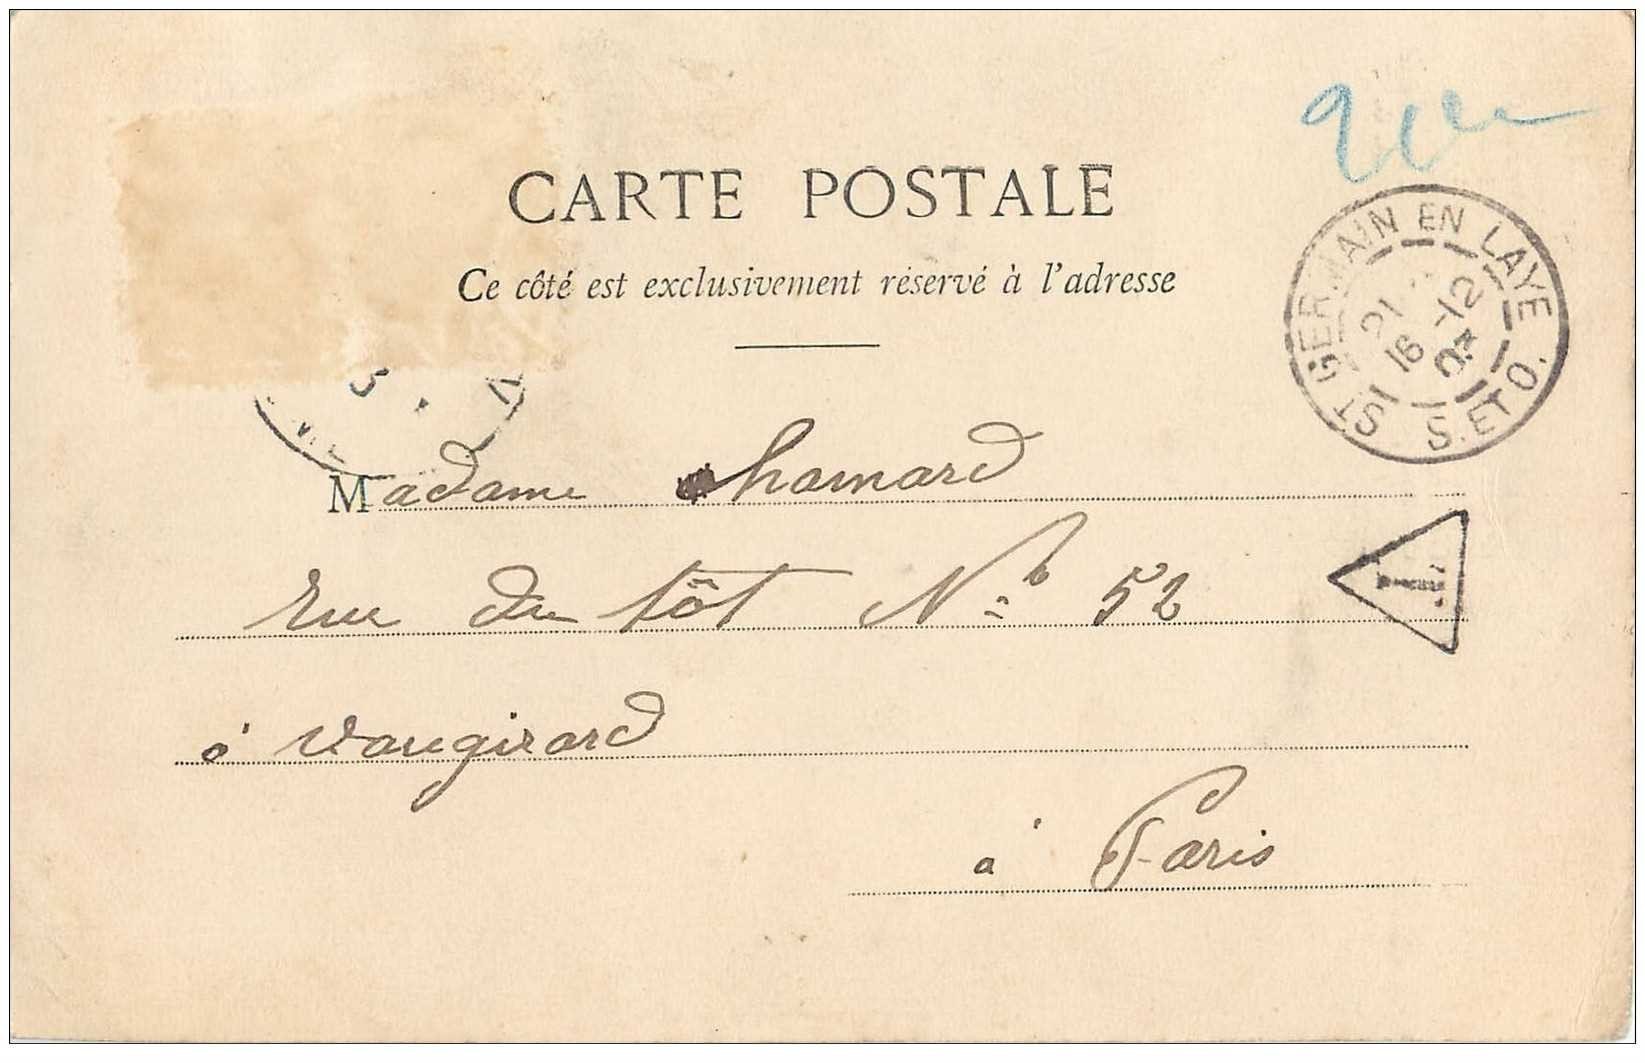 CARTE POSTALE
Ce côté est exclusivement réservé à l'adresse
ST GERMAIN EN LAYE
21
16 -12
03
S. ET O.
Madame Chamard
T
rue du tôt No 52
à Vaugirard
à Paris